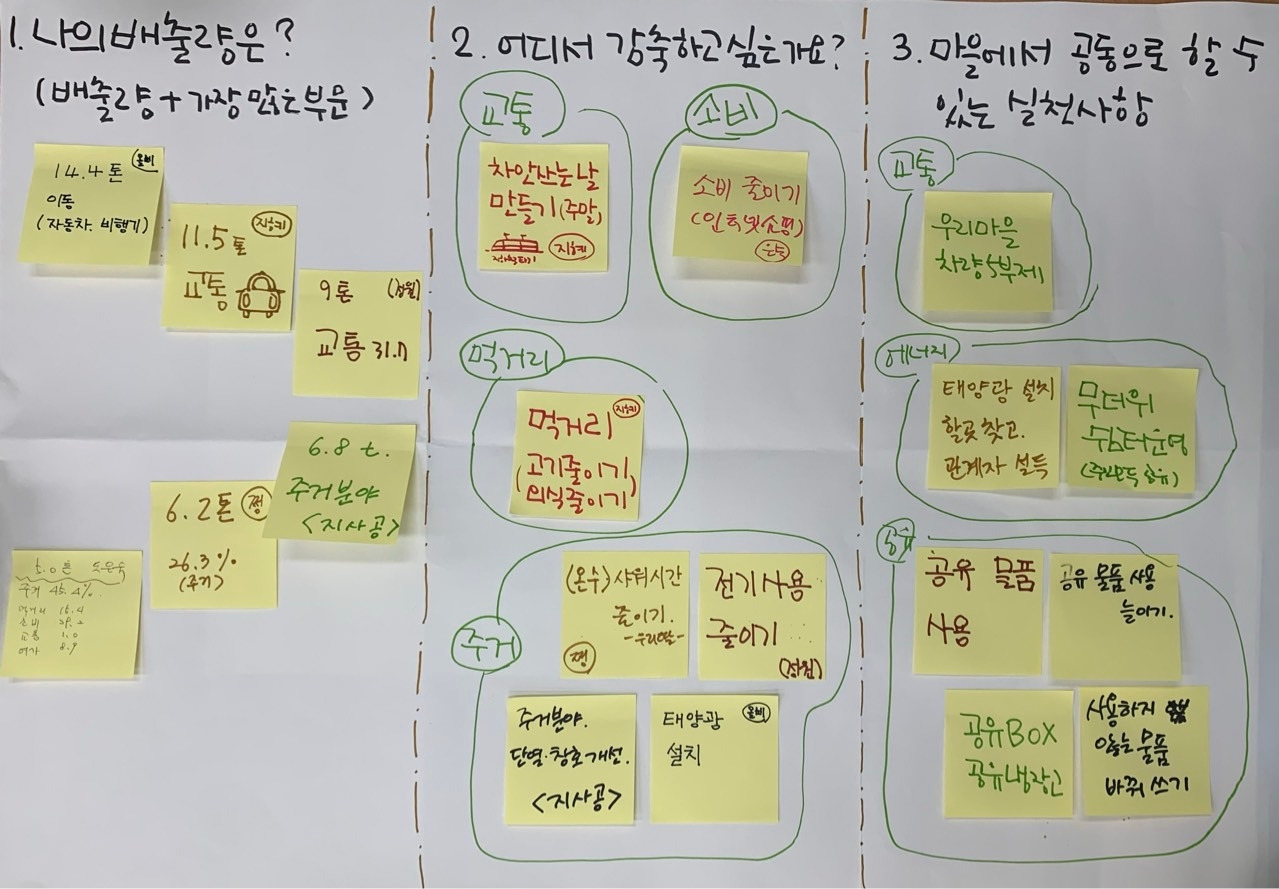 1. 나의 배출량은?
(배출량 + 가장 많은 부문)
14.4톤 올비
이동
(자동차. 비행기)
11.5톤 지혜
교통
9톤 (잠원)
교통 31.7
6.8 t.
주거분야
<지사공>
6.2톤 쩡
26.3%
(주거)
5.0톤
주거 45.4%
먹거리 15.4
소비
교통 1.0
여가 8.9
2. 어디서 감축하고 싶은가요?
교통
차안산는날
만들기(주말)
지혜
소비
소비 줄이기
(인터넷쇼핑)
은숙
먹거리
먹거리 지혜
(고기줄이기)
외식줄이기
주거
(온수) 샤워시간
줄이기.
쩡
전기사용
줄이기
(잠원)
주거분야.
단열·창호개선.
<지사공>
태양광 올비
설치
3. 마을에서 공동으로 할 수
있는 실천사항
교통
우리마을
차량5부제
에너지
태양광 설치
할곳 찾고.
관계자 설득
무더위
쉼터운영
공유
공유 물품
사용
공유 물품 사용
늘이기.
공유BOX
공유냉장고
사용하지
않는 물품
바꿔 쓰기